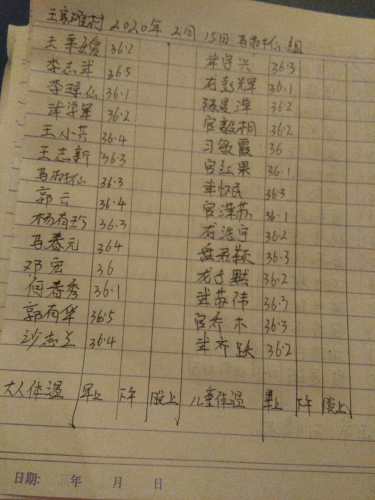 王家滩村 2020年2月15日 马树仙组
36.2 武学兴 36.3
李志武 36.5 龙彭辉 36.1
李琼仙 36.1 36.2
武学军 36.2 官毅桐 36.2
王小芬 36.4 习敏霞 36
王志新 36.3 官红果 36.1
马树仙 36.3 36.3
郭云 36.4 官泽苏 36.1
杨有珍 36.3 龙浩宇 36.2
马春元 364 36.3
邓宏 36 龙子默 36.2
何春秀 36.1 武苏伟 36.3
郭有华 36.5 官乔木 36.3
沙志兰 36.4 武齐跃 36.2
大人体温 早上 下午 晚上 儿童体温 早上 下午 晚上
日期: 年 月 日